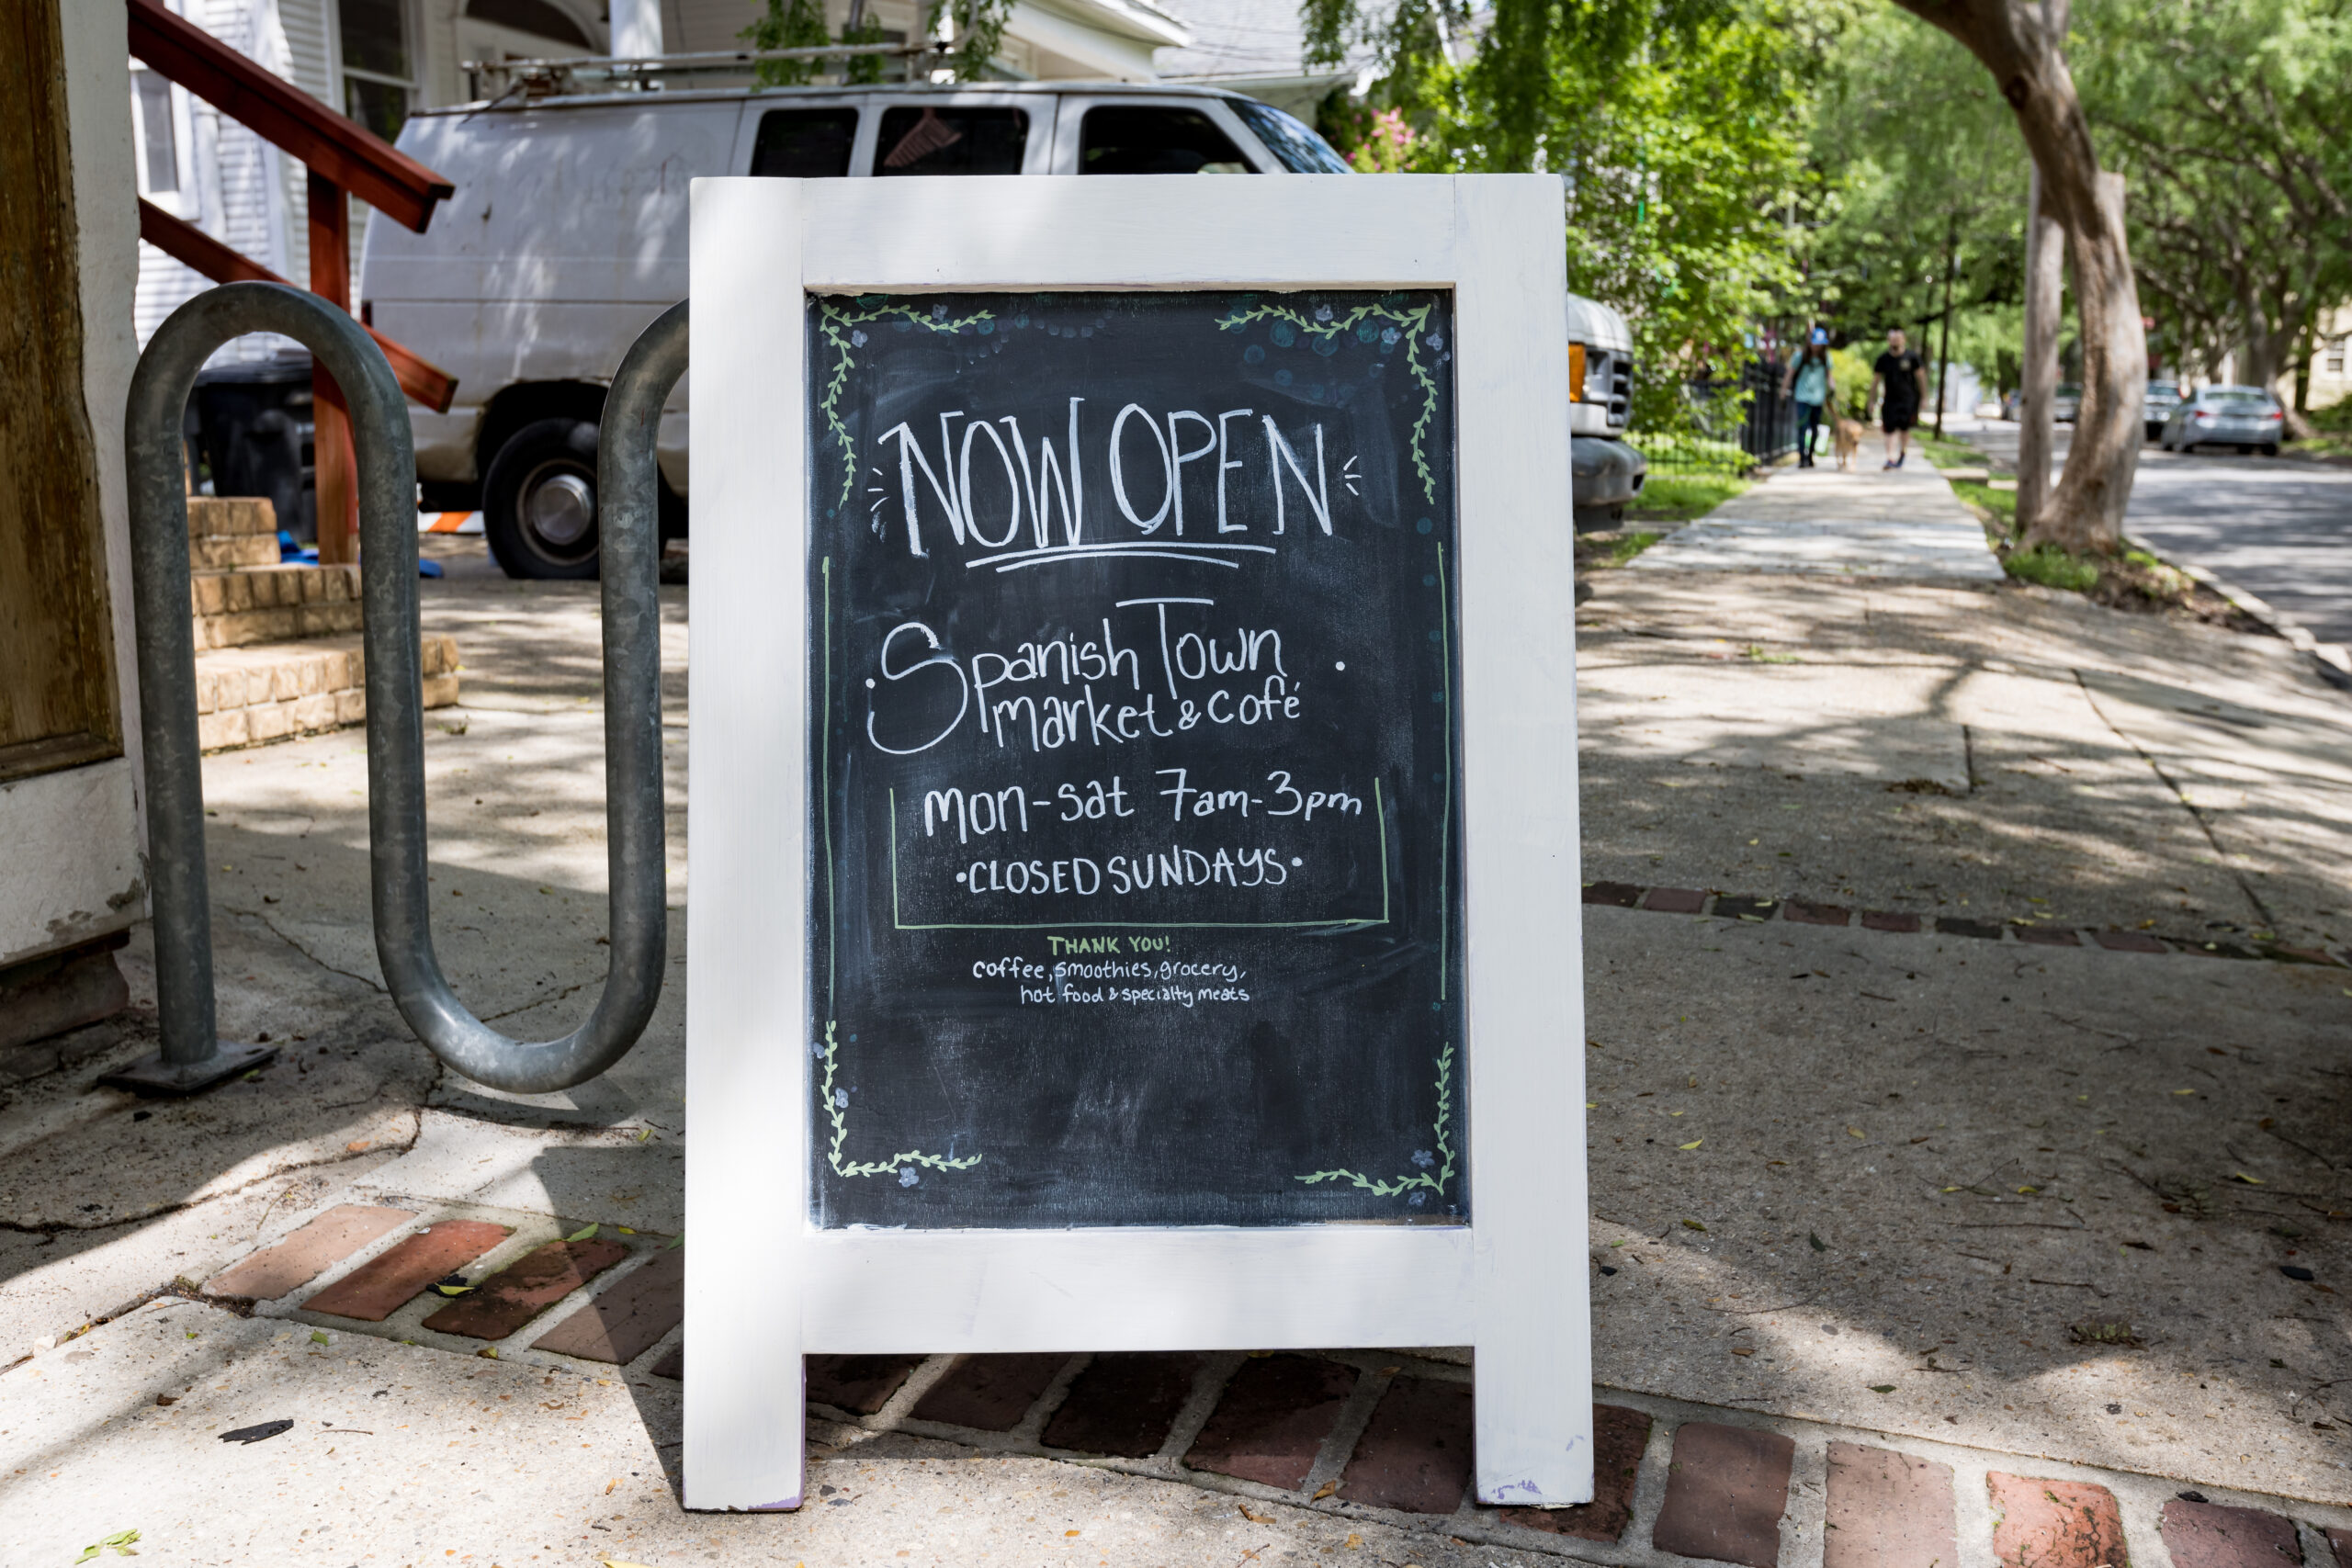 NOW OPEN
Spanish Town
market & café
mon-sat 7am-3pm
•CLOSED SUNDAYS•
THANK YOU!
coffee, smoothies, grocery,
hot food & specialty meats